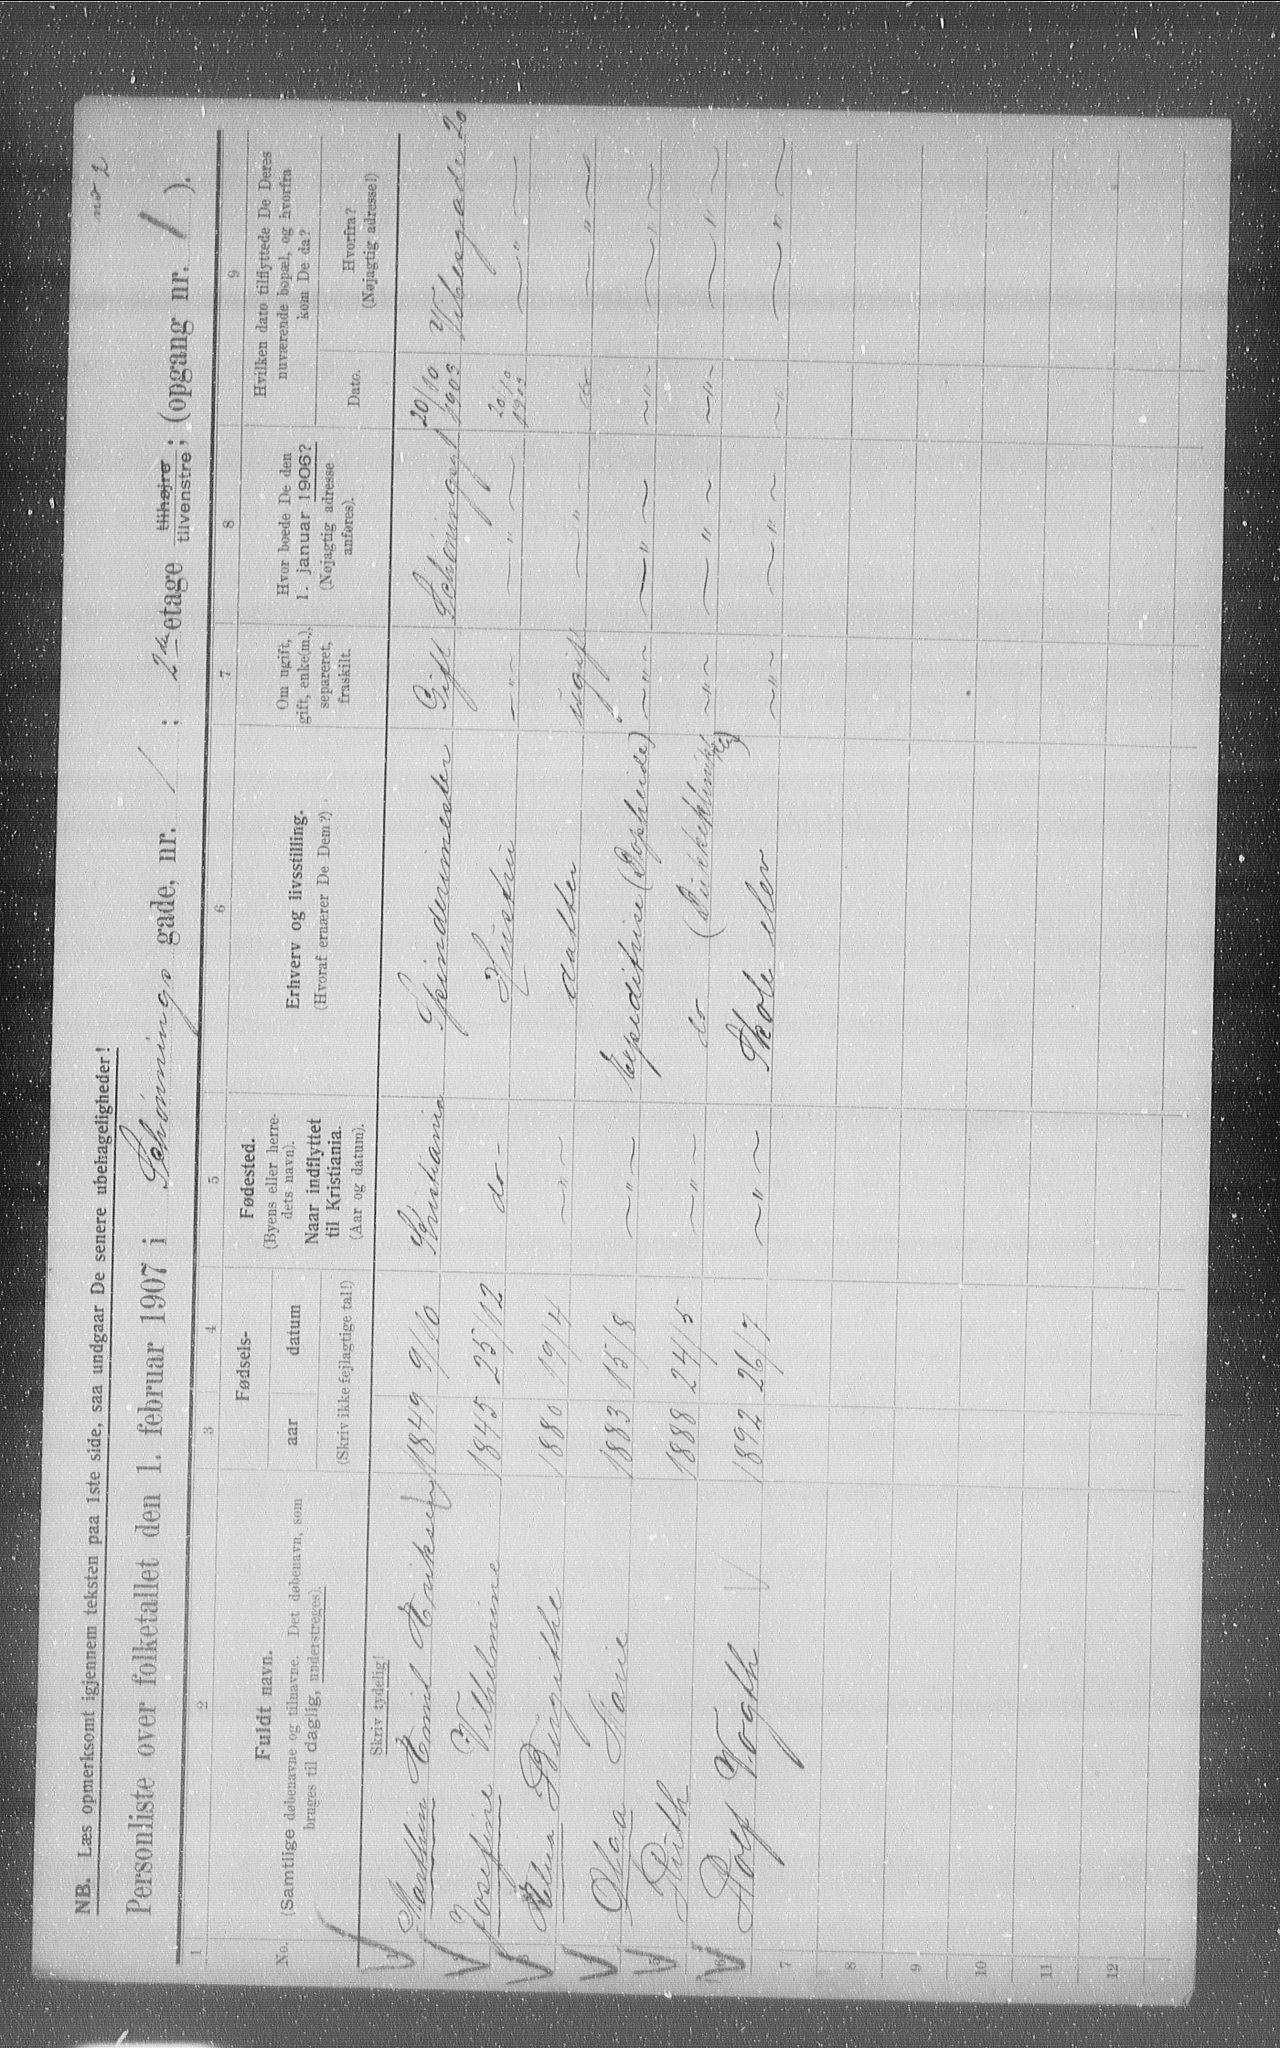 no 2
NB. Læs opmerksomt igjennem teksten paa 1ste side, saa undgaar De senere ubehageligheder!
Personliste over folketallet den 1. februar 1907 i Schønnings gade, nr. 1 ; 2de etage tilhøjre tilvenstre ; (opgang nr. 1 ).
1 2 3 4 5 6 7 8 9
No.
Fuldt navn.
(Samtlige døbenavne og tilnavne. Det døbenavn, som
bruges til daglig, understreges).
Fødsels-
aar datum
(Skriv ikke fejlagtige tal!)
Fødested.
(Byens eller herre-
dets navn).
Naar indflyttet
til Kristiania.
(Aar og datum).
Erhverv og livsstilling.
(Hvoraf ernærer De Dem?)
Om ugift,
gift, enke(m.),
separeret,
fraskilt.
Hvor boede De den
1. januar 1906?
(Nøjagtig adresse
anføres).
Hvilken dato tilflyttede De Deres
nuværende bopæl, og hvorfra
kom De da?
Dato.
Hvorfra?
(Nøjagtig adresse!)
Skriv tydelig!
1 Marthin Emil Eriksen 1849 9/10 Kristiania Spindemester Gift Schøningsgt 20/10 1903 Vibesgade 20
2 Josefine Vilhelmine 1845 25/12 do - Hustru - " - - " - 20/10 1903 - " -
3 Elna Birgithe 1880 19/4 - " - datter ugift - " - do - " -
4 Olga Marie 1883 15/8 - " - Expeditrise - " - - " - - " - - " -
5 Ruth 1888 24/5 - " - do - " - - " - - " - - " -
6 Rolf Vogth 1892 26/7 - " - Skole elev - " - - " - - " - - " -
7
8
9
10
11
12